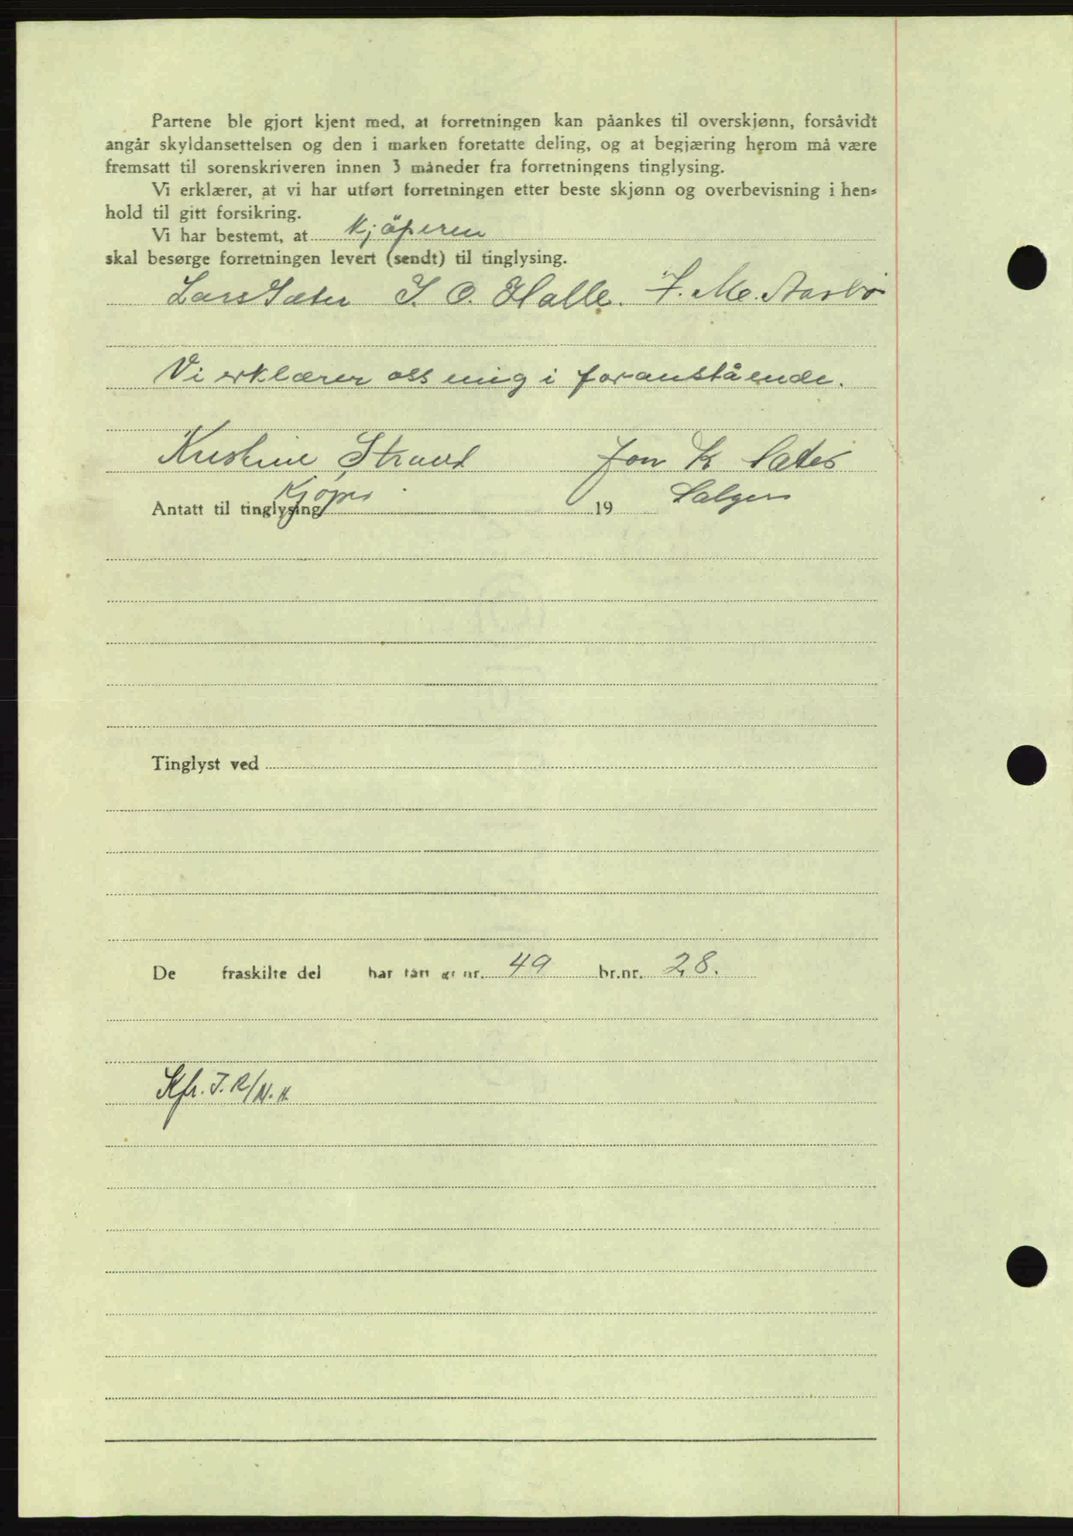 Partene ble gjort kjent med, at forretningen kan påankes til overskjønn, forsåvidt
angår skyldansettelsen og den i marken foretatte deling, og at begjæring herom må være
fremsatt til sorenskriveren innen 3 måneder fra forretningens tinglysing.
Vi erklærer, at vi har utført forretningen etter beste skjønn og overbevisning i hen-
hold til gitt forsikring.
Vi har bestemt, at kjöperen
skal besørge forretningen levert (sendt) til tinglysing.
Lars Sæter J. O. Halle. F. M. Aasbö
Vi erklærer oss enig i foranstående.
Kristine Strand Jon K Sæter
Kjøper Selger
Antatt til tinglysing 19
Tinglyst ved
De fraskilte del har fått gr.nr. 49 br.nr. 28.
Kfr. J. R/N. H.